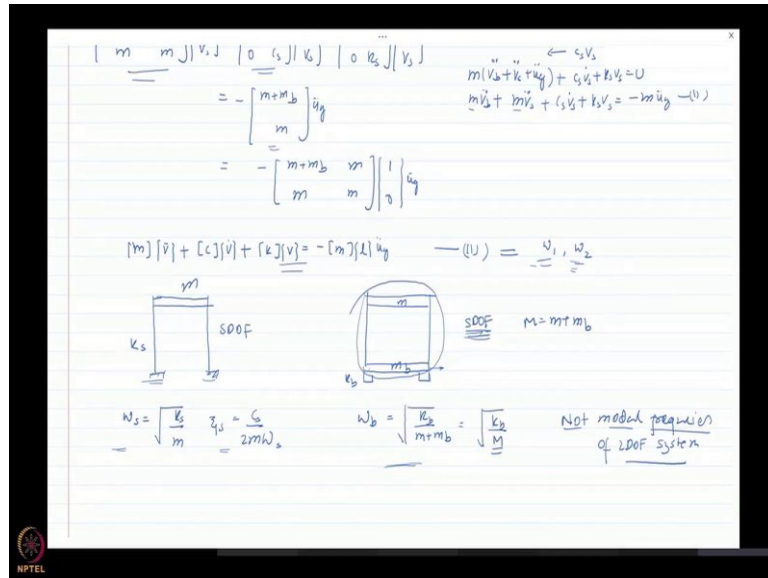 [ m m ] { v̈s } [ 0 cs ] { v̇s } [ 0 ks ] { vs }
← csv̇s
m(v̈b + v̈s + üg) + csv̇s + ksvs = 0
= - [ m+mb ; m ] üg
mv̈b + mv̈s + csv̇s + ksvs = -m üg —(1)
= - [ m+mb m ; m m ] { 1 ; 0 } üg
[m]{v̈} + [c]{v̇} + [k]{v} = -[m]{l} üg —(11) = w1, w2
m
ks SDOF
m
mb
kb
SDOF M = m+mb
ws = √(ks/m) ξs = cs/2mws wb = √(kb/(m+mb)) = √(kb/M) Not modal frequencies
of 2DOF system
NPTEL